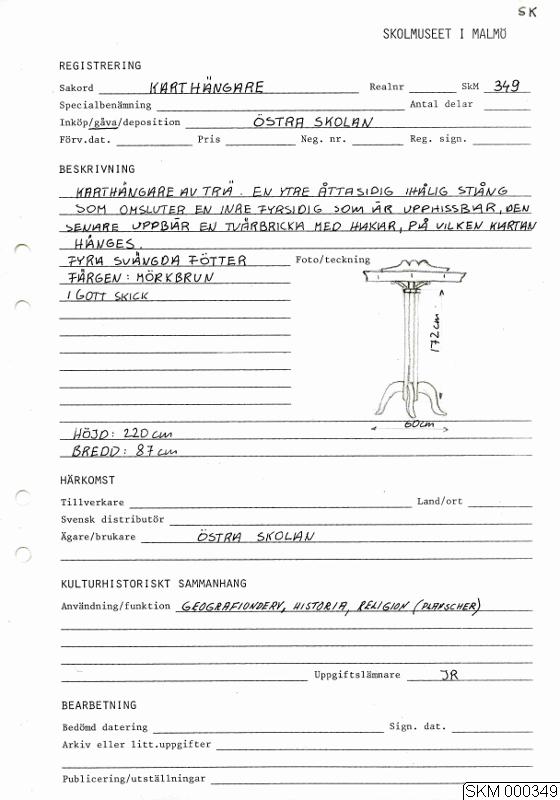 SK
SKOLMUSEET I MALMÖ
REGISTRERING
Sakord KARTHÄNGARE Realnr SkM 349
Specialbenämning Antal delar
Inköp/gåva/deposition ÖSTRA SKOLAN
Förv.dat. Pris Neg. nr. Reg. sign.
BESKRIVNING
KARTHÄNGARE AV TRÄ. EN YTRE ÅTTASIDIG IHÅLIG STÅNG
SOM OMSLUTER EN INRE FYRSIDIG SOM ÄR UPPHISSBAR, DEN
SENARE UPPBÄR EN TVÄRBRICKA MED HAKAR, PÅ VILKEN KARTAN
HÄNGES.
FYRA SVÄNGDA FÖTTER Foto/teckning
FÄRGEN: MÖRKBRUN
I GOTT SKICK
172cm
60cm
HÖJD: 220 cm
BREDD: 87 cm
HÄRKOMST
Tillverkare Land/ort
Svensk distributör
Ägare/brukare ÖSTRA SKOLAN
KULTURHISTORISKT SAMMANHANG
Användning/funktion GEOGRAFIONDERV, HISTORIA, RELIGION (PLANSCHER)
Uppgiftslämnare JR
BEARBETNING
Bedömd datering Sign. dat.
Arkiv eller litt.uppgifter
Publicering/utställningar
SKM 000349